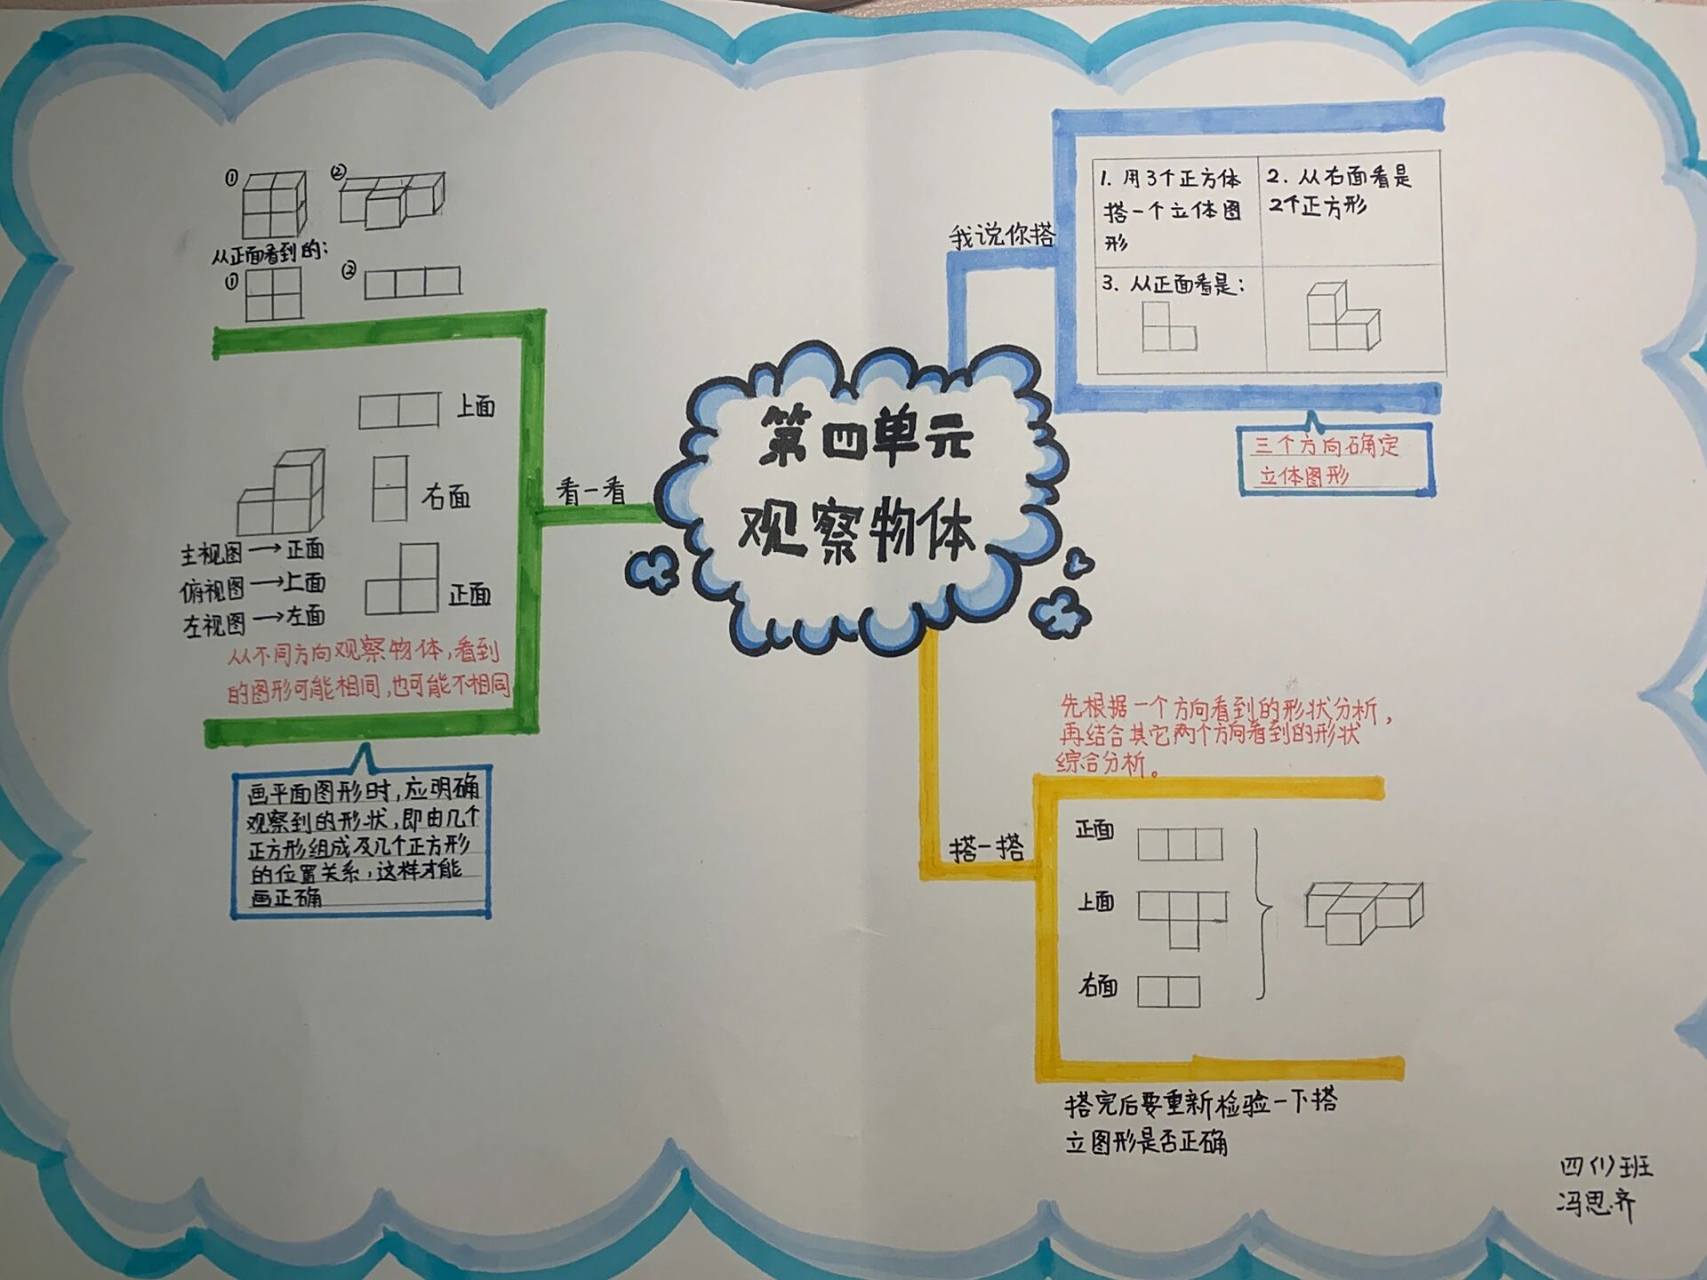 第四单元
观察物体
看一看
① ②
从正面看到的:
① ②
上面
右面
正面
主视图→正面
俯视图→上面
左视图→左面
从不同方向观察物体,看到
的图形可能相同,也可能不相同
画平面图形时,应明确
观察到的形状,即由几个
正方形组成及几个正方形
的位置关系,这样才能
画正确
我说你搭
1. 用3个正方体
搭一个立体图
形
2. 从右面看是
2个正方形
3. 从正面看是:
三个方向确定
立体图形
搭一搭
先根据一个方向看到的形状分析,
再结合其它两个方向看到的形状
综合分析。
正面
上面
右面
搭完后要重新检验一下搭
立图形是否正确
四(1)班
冯思齐